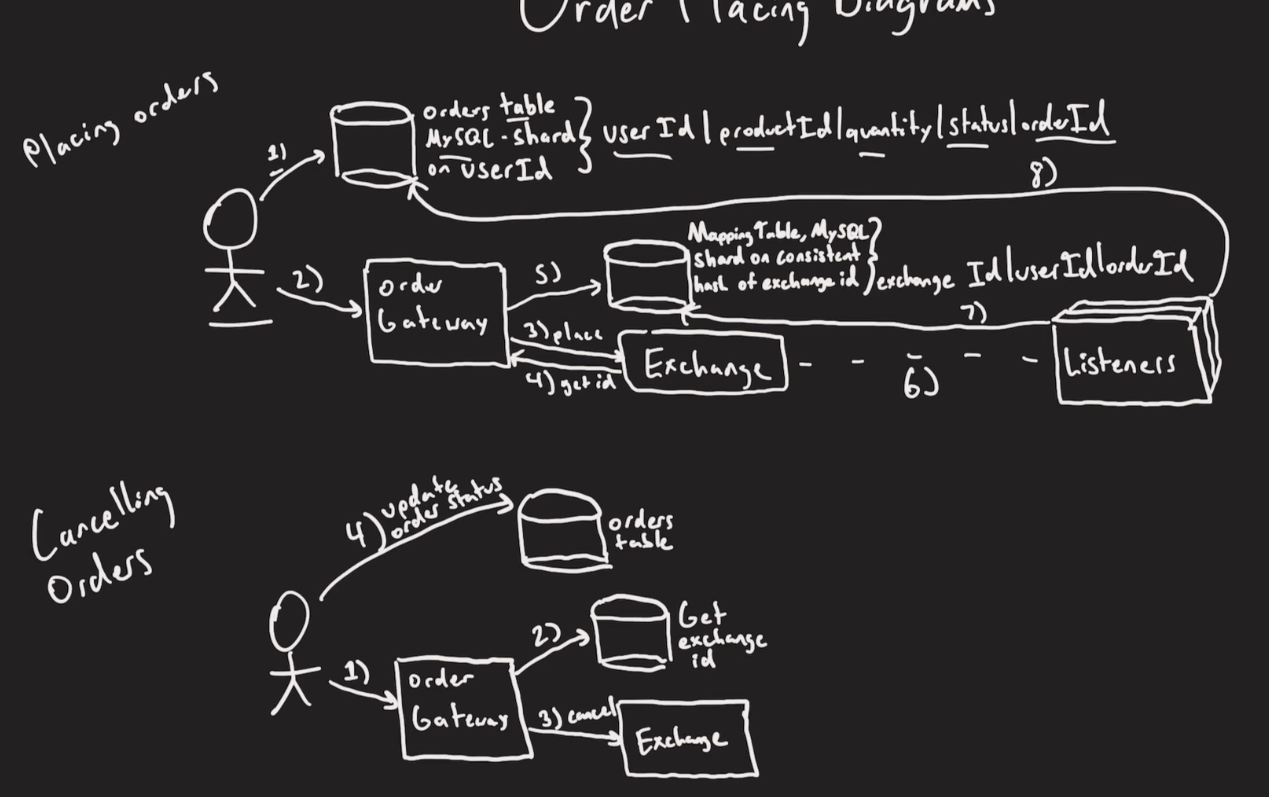 Order Placing Diagrams
Placing orders
1)
orders table
MySQL - shard
on userId
userId | productId | quantity | status | orderId
8)
2)
order
Gateway
5)
Mapping Table, MySQL
shard on consistent
hash of exchange id
exchange Id | userId | orderId
3) place
4) get id
Exchange
6)
7)
Listeners
Cancelling
Orders
4) update
order status
orders
table
1)
order
Gateway
2)
Get
exchange
id
3) cancel
Exchange